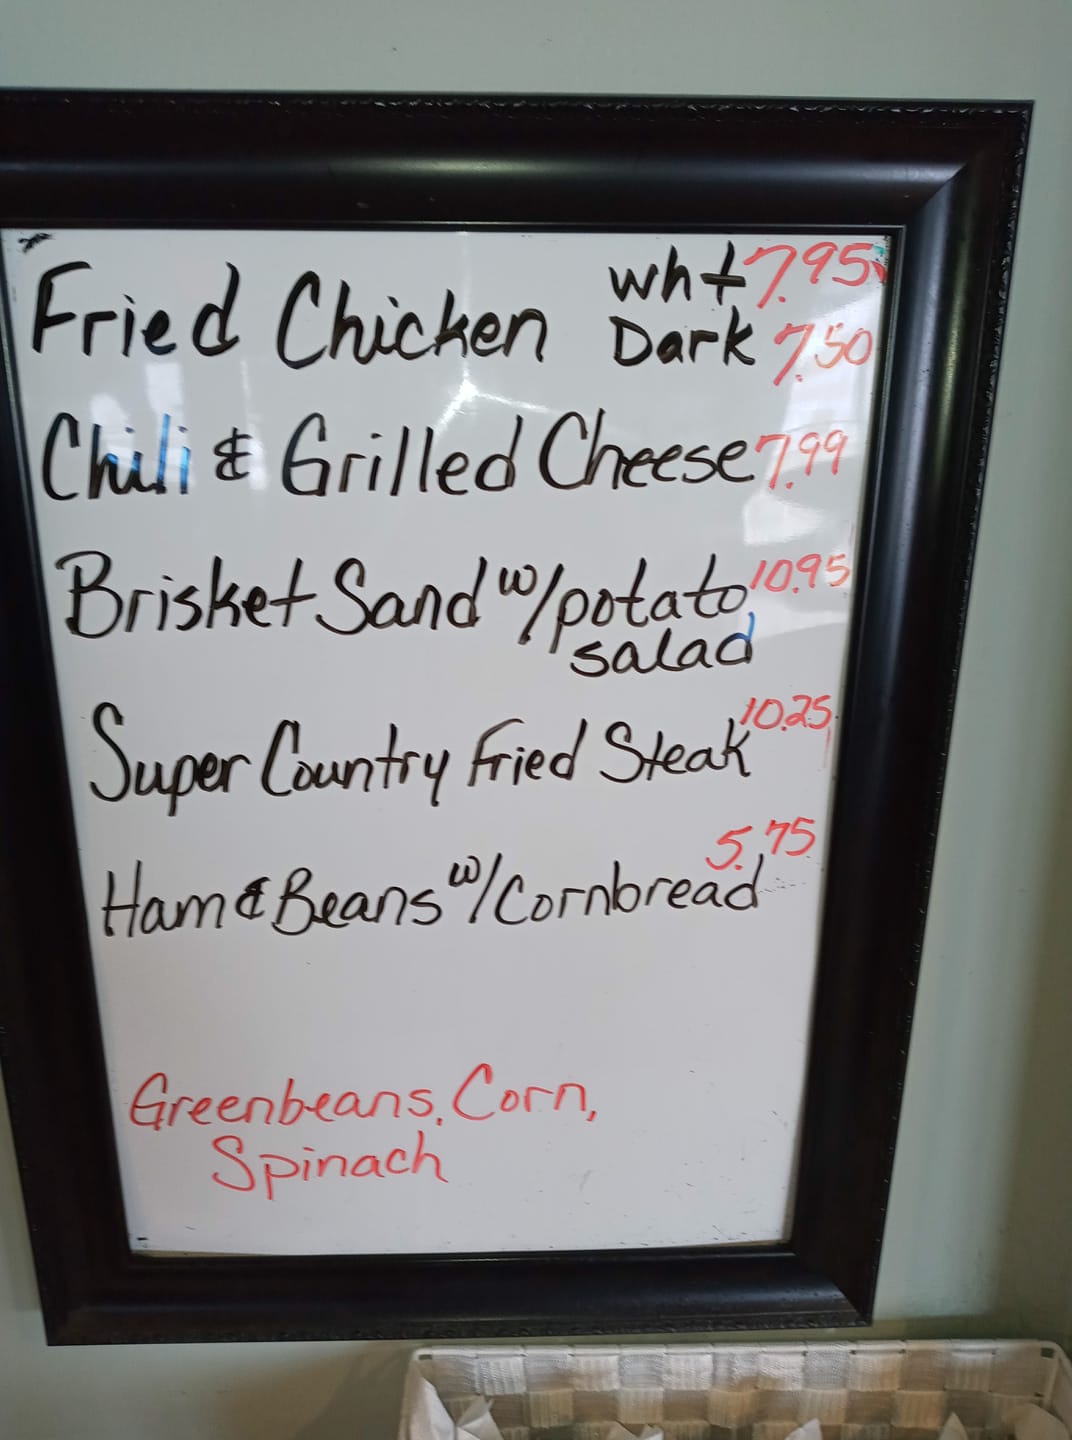 Fried Chicken wht 7.95
Dark 7.50
Chili & Grilled Cheese 7.99
Brisket Sand w/potato 10.95
salad
Super Country Fried Steak 10.25
Ham & Beans w/Cornbread 5.75
Greenbeans, Corn,
Spinach